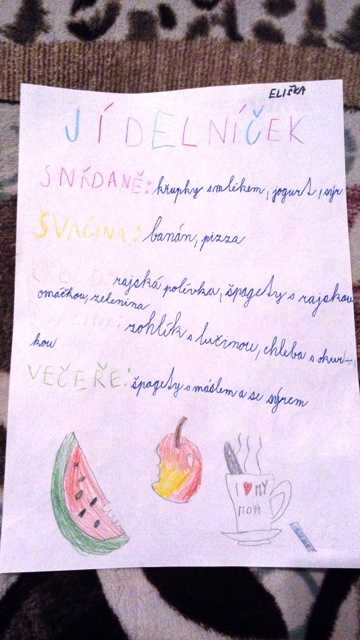 ELIŠKA
JÍDELNÍČEK
SNÍDANĚ: křupky s mlíkem, jogurt, sýr
SVAČINA: banán, pizza
OBĚD: rajská polívka, špagety s rajskou
omáčkou, zelenina
rohlík s lučinou, chleba s okur-
kou
VEČEŘE: špagety s máslem a se sýrem
I ♥ MY
MOM